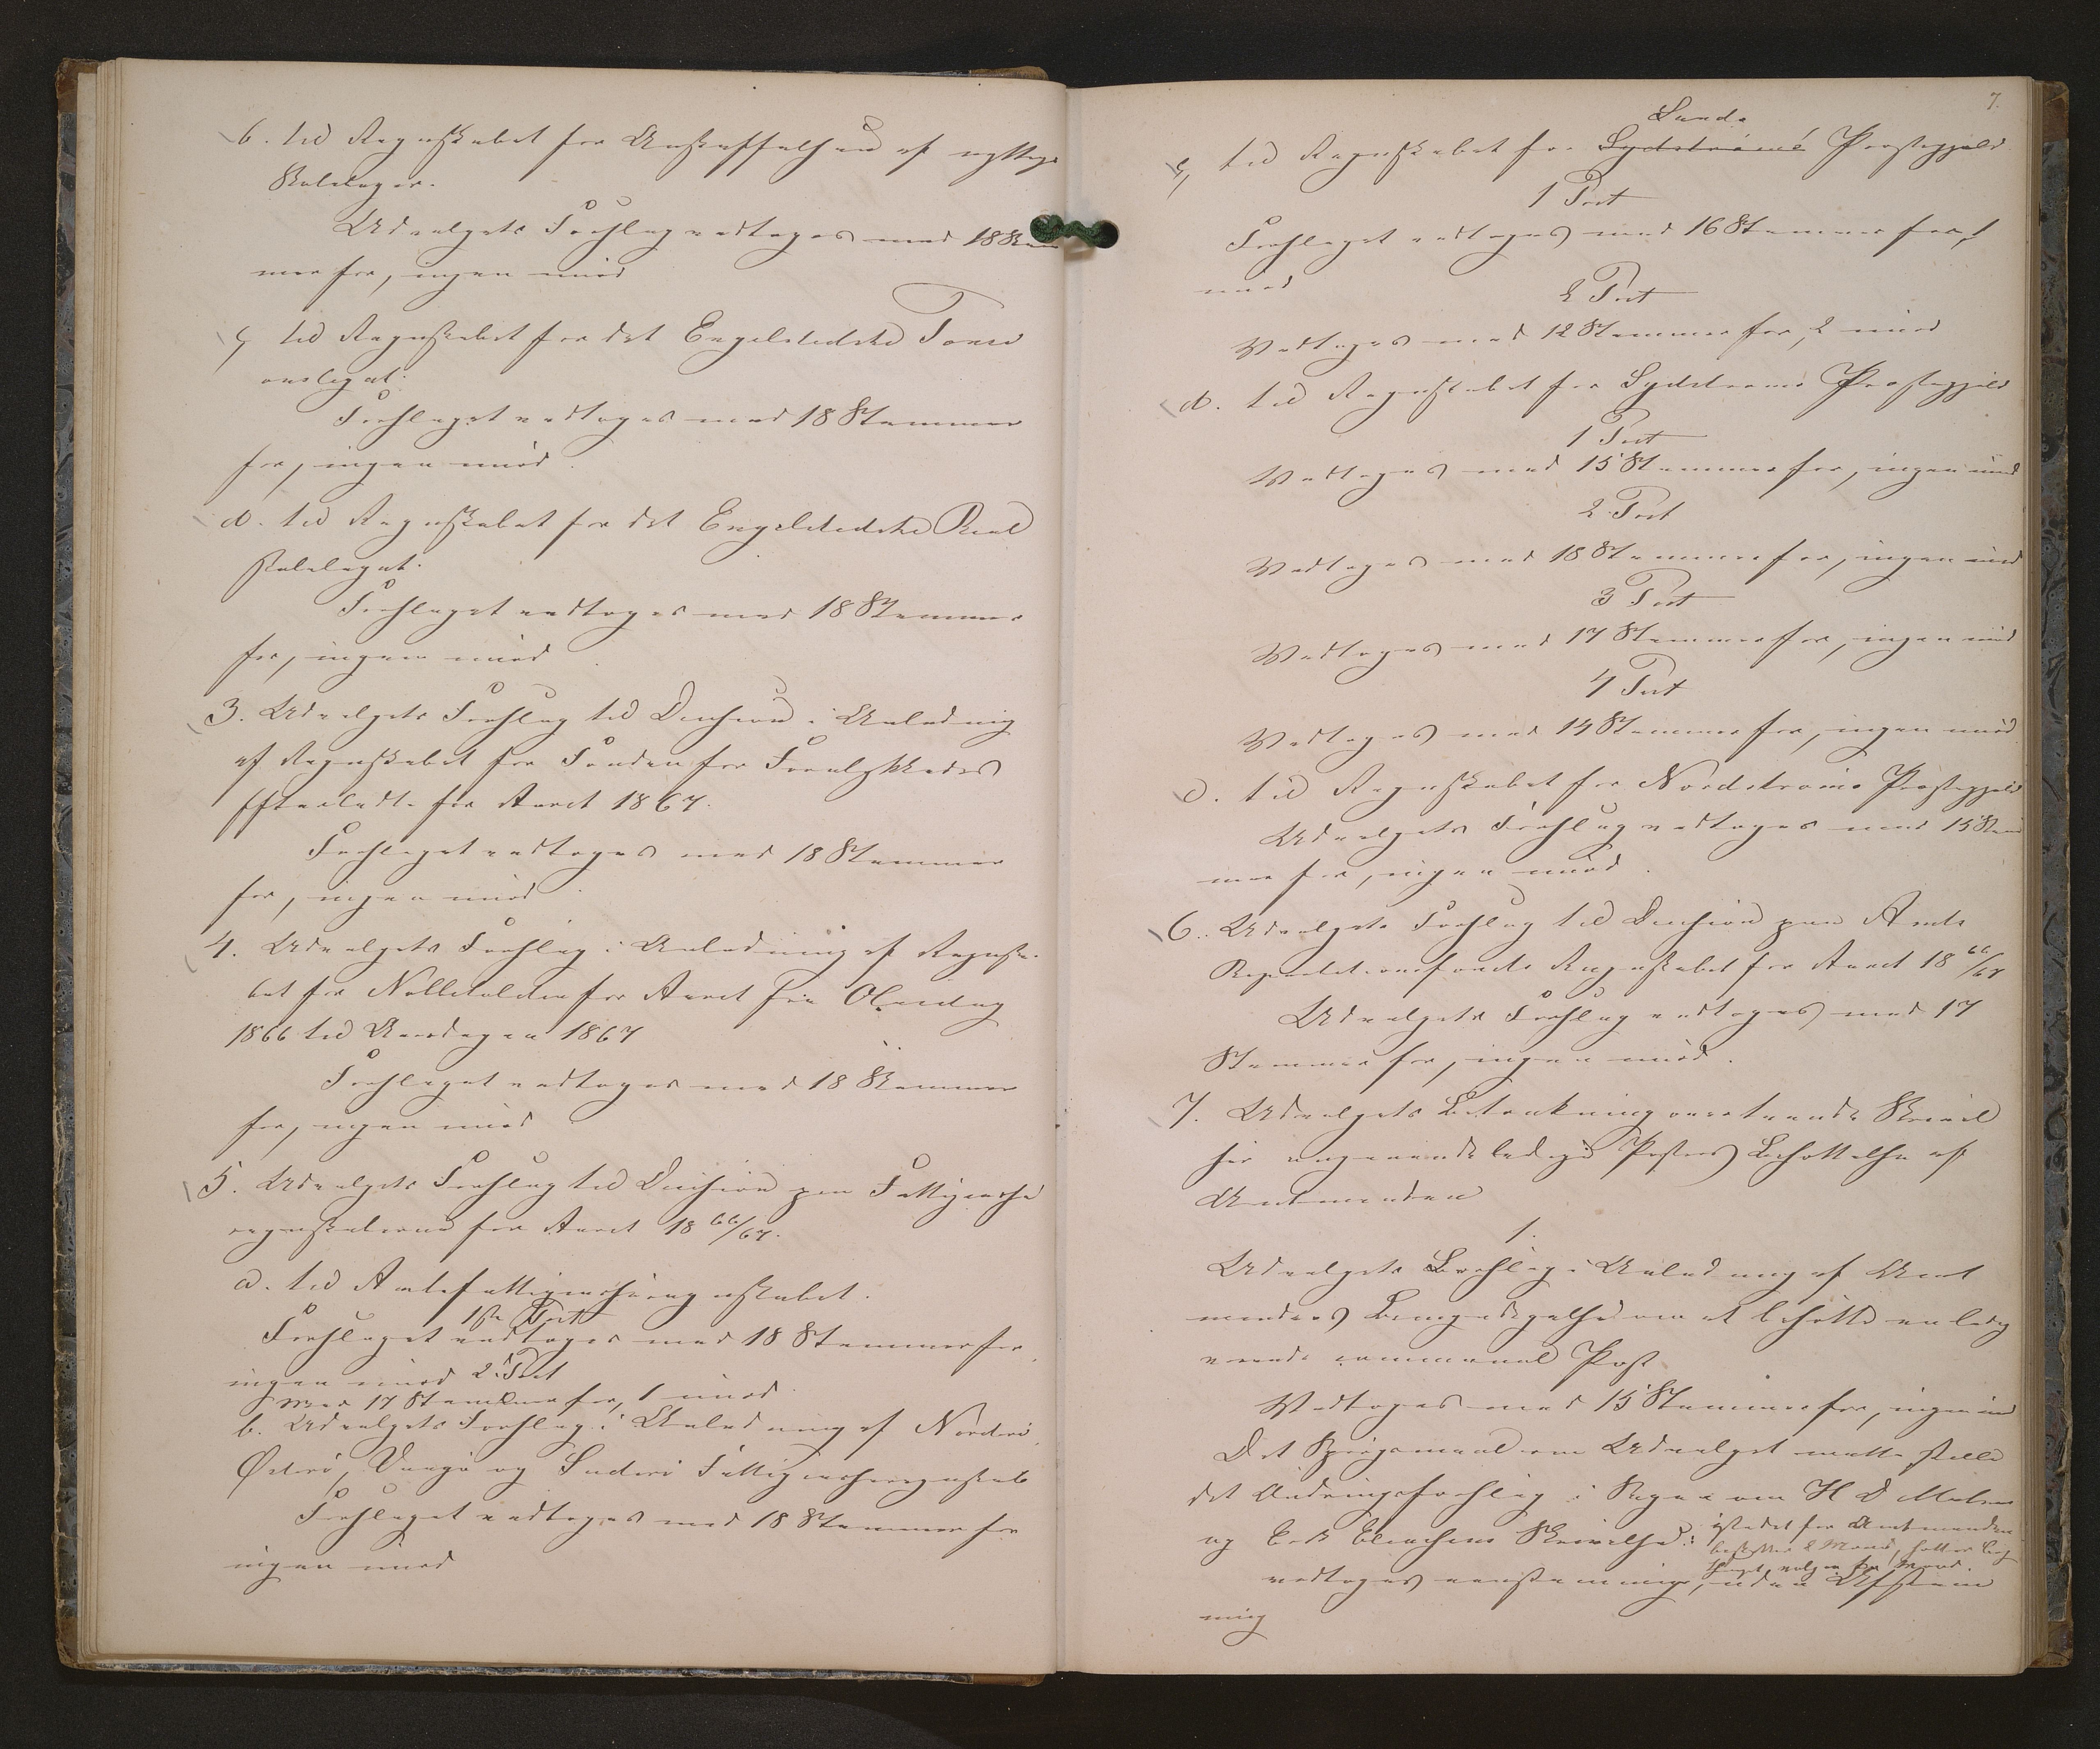 b. til Regnskabet for Anskaffelsen af nyttige
Skolebøger.
Udvalgets Forslag vedtoges med 18 Stem
mer for, ingen imod
c, til Regnskabet for det Engelstedske
onslegat.
Forslaget vedtoges med 18 Stemmer
for, ingen imod.
d. til Regnskabet for det Engelstedske Real
skolelegat.
Forslaget vedtoges med 18 Stemmer
for, ingen imod
3. Udvalgets Forslag til Decision i Anledning
af Regnskabet for Fonden for Forulykkedes
Efterladte for Aaret 1867.
Forslaget vedtoges med 18 Stemmer
for, ingen imod.
4. Udvalgets Forslag i Anledning af Regnska-
bet for for Aaret fra Olaidag
1866 til 1867
Forslaget vedtoges med 18 Stemmer
for, ingen imod
5. Udvalgets Forslag til Decision paa Fattigvæsens
regnskaberne for Aaret 18 66/67.
a. til Amtsfattigvæsensregnskabet.
1ste Post
Forslaget vedtoges med 18 Stemmer for,
ingen imod 2. Post
med 17 Stemmer for, 1 imod.
b. Udvalgets Forslag i Anledning af Norderø,
Østerø, Vaagø og Suderø Fattigvæsensregnskab
Forslaget vedtoges med 18 Stemmer for
ingen imod
7.
Sandø
c, til Regnskabet for Sydstrømø Præstegjeld
1 Post
Forslaget vedtoges med 16 Stemmer for, 1
imod
2 Post
Vedtoges med 12 Stemmer for, 2 imod
d. til Regnskabet for Sydstrømø Præstegjeld
1 Post
Vedtoges med 15 Stemmer for, ingen imod
2 Post
Vedtoges med 18 Stemmer for, ingen imod
3 Post
Vedtoges med 17 Stemmer for, ingen imod
4 Post
Vedtoges med 14 Stemmer for, ingen imod
e. til Regnskabet for Nordstrømø Præstegjeld
Udvalgets Forslag vedtoges med 15 Stem
mer for, ingen imod.
6. Udvalgets Forslag til Decision paa Amts
Repartitionsfonds Regnskabet for Aaret 18 66/67
Udvalgets Forslag vedtoges med 17
Stemmer for, ingen imod.
7. Udvalgets Betænkning
ledige Posters Besættelse af
Amtmanden
1.
Udvalgets Forslag i Anledning af Amt
mandens om at besætte en ledig
værende communal Post
Vedtoges med 15 Stemmer for, ingen imod
Det Spørgsmaal om Udvalget maatte stille
det Ændringsforslag i Sagen om H D Matras
og istedet for Amtmanden
beskikker 2 Mænd, sætter Lag
tinget vælger to Mænd.
vedtoges eenstemmigt, uden Afstem
ning